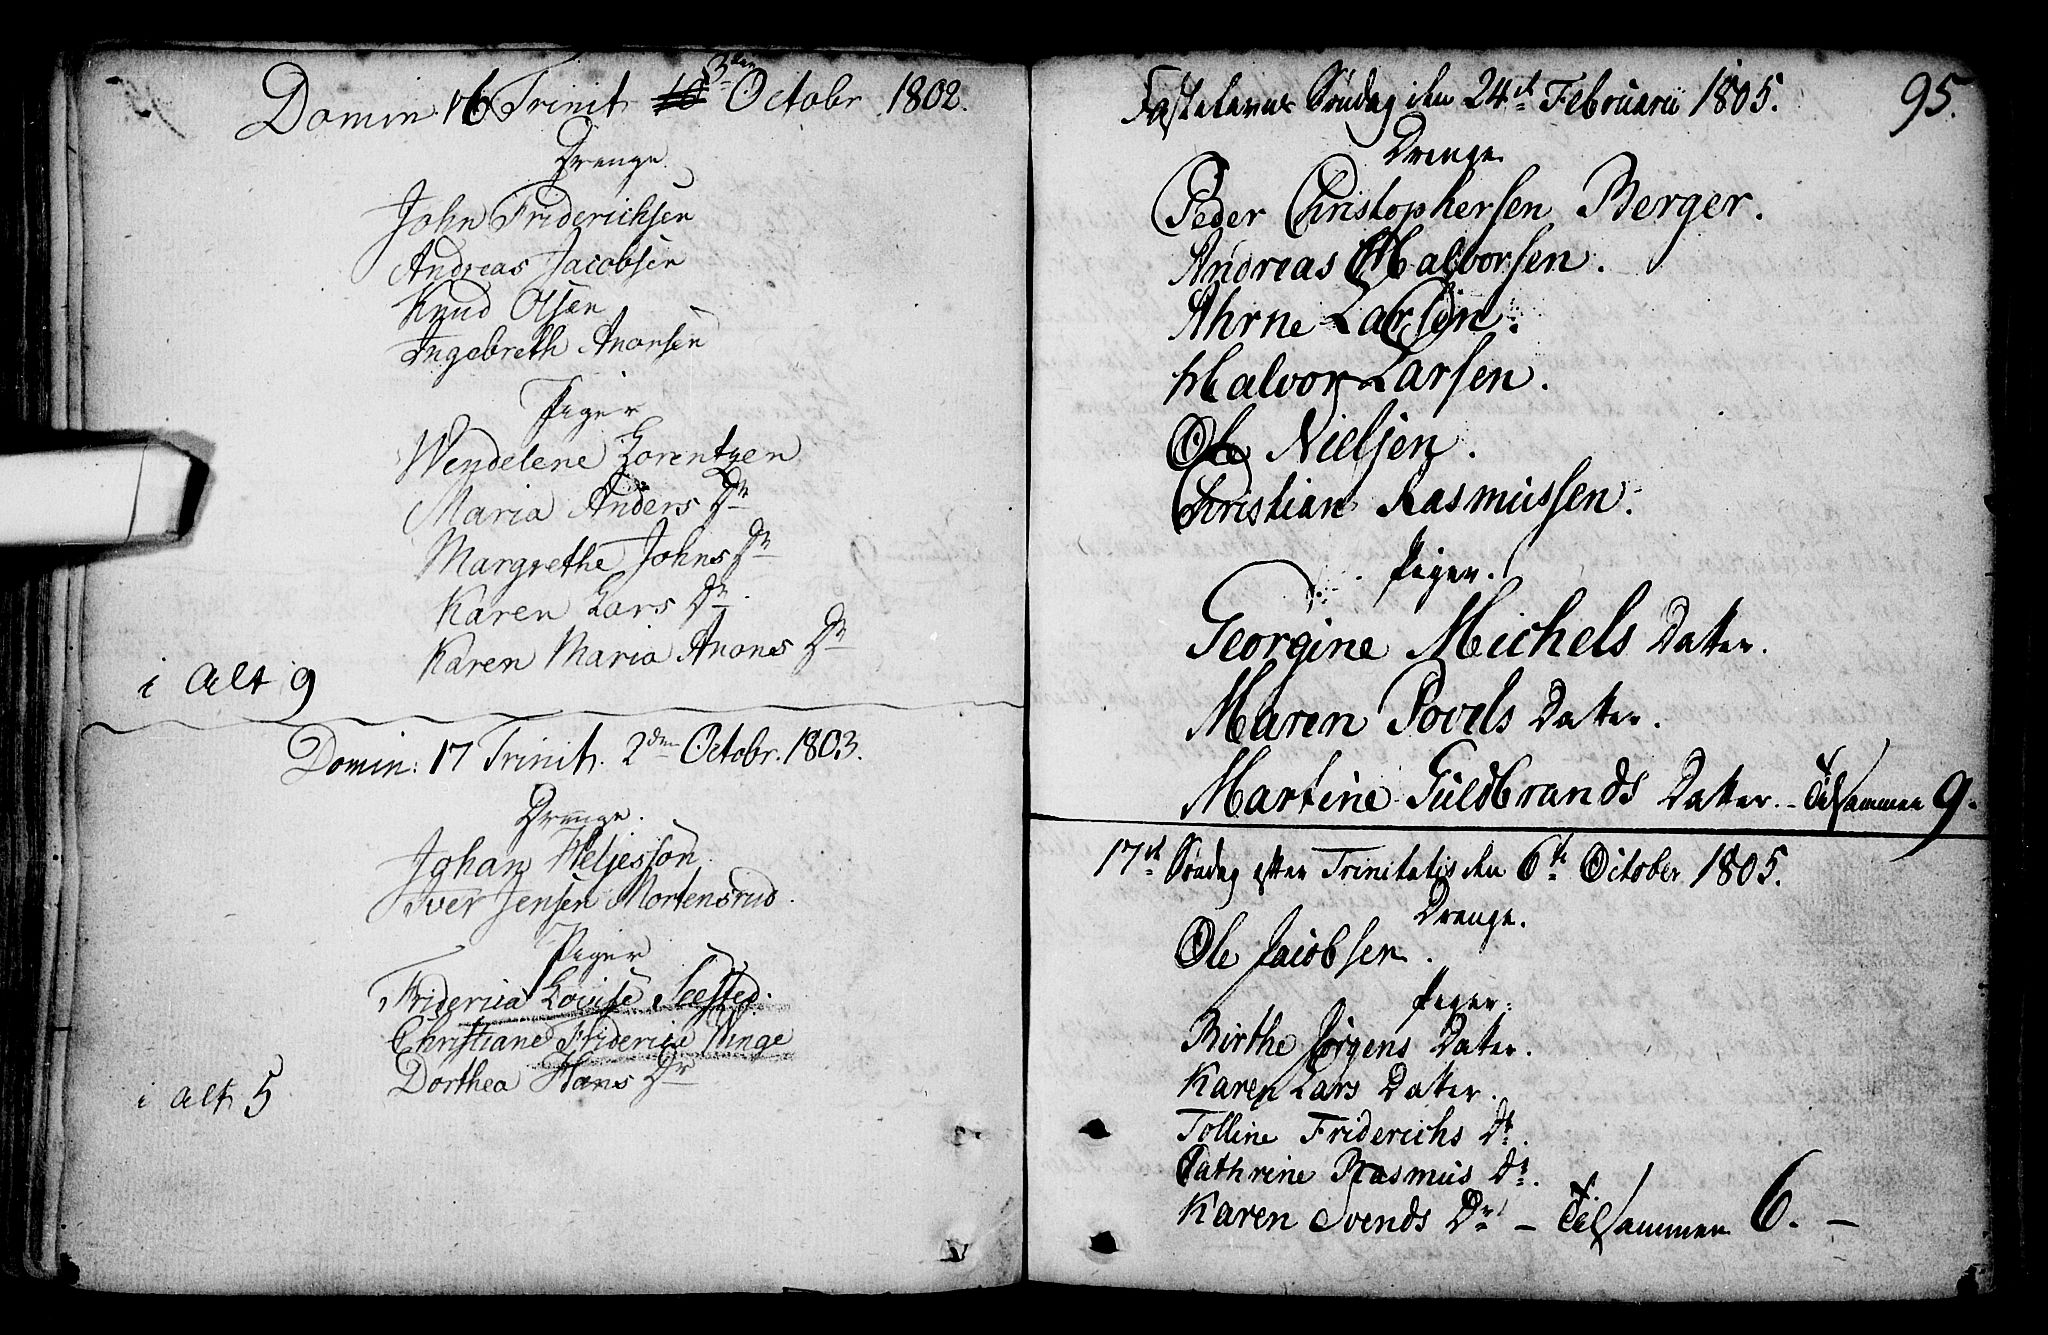 Domin. 16 Trinit. 3den Octobr 1802.
Drenge
John Friderichsen
Andreas Jacobsen
Knud Olsen
Ingebreth Anonsen
Piger
Wendelene Lorentzen
Maria Anders Dr
Margrethe Johns Dr
Karen Lars Dr
Karen Maria Anones Dr
i Alt 9
Domin: 17 Trinit. 2den Octobr. 1803.
Drenge.
Johan Heljesson
Iver Jensen Mortensrud.
Piger
Fridericia Louise Seested.
Christiane Fridericia Winge
Dorthea Hans Dr
i Alt 5
95.
Fastelavns Søndag den 24de Februarii 1805.
Drenge
Peder Christophersen Berger.
Andreas Halvorsen.
Ahrne Larsen.
Halvor Larsen.
Ole Nielsen.
Christian Rasmussen.
Piger.
Georgine Michels Datter.
Maren Povels Datter.
Martine Guldbrands Datter. – Tilsammen 9.
17de Søndag efter Trinitatis den 6te October 1805.
Drenge.
Ole Jacobsen.
Piger.
Birthe Jørgens Datter.
Karen Lars Datter.
Tolline Friderichs Dr.
Cathrine Rasmus Dr.
Karen Svends Dr – Tilsammen 6. –